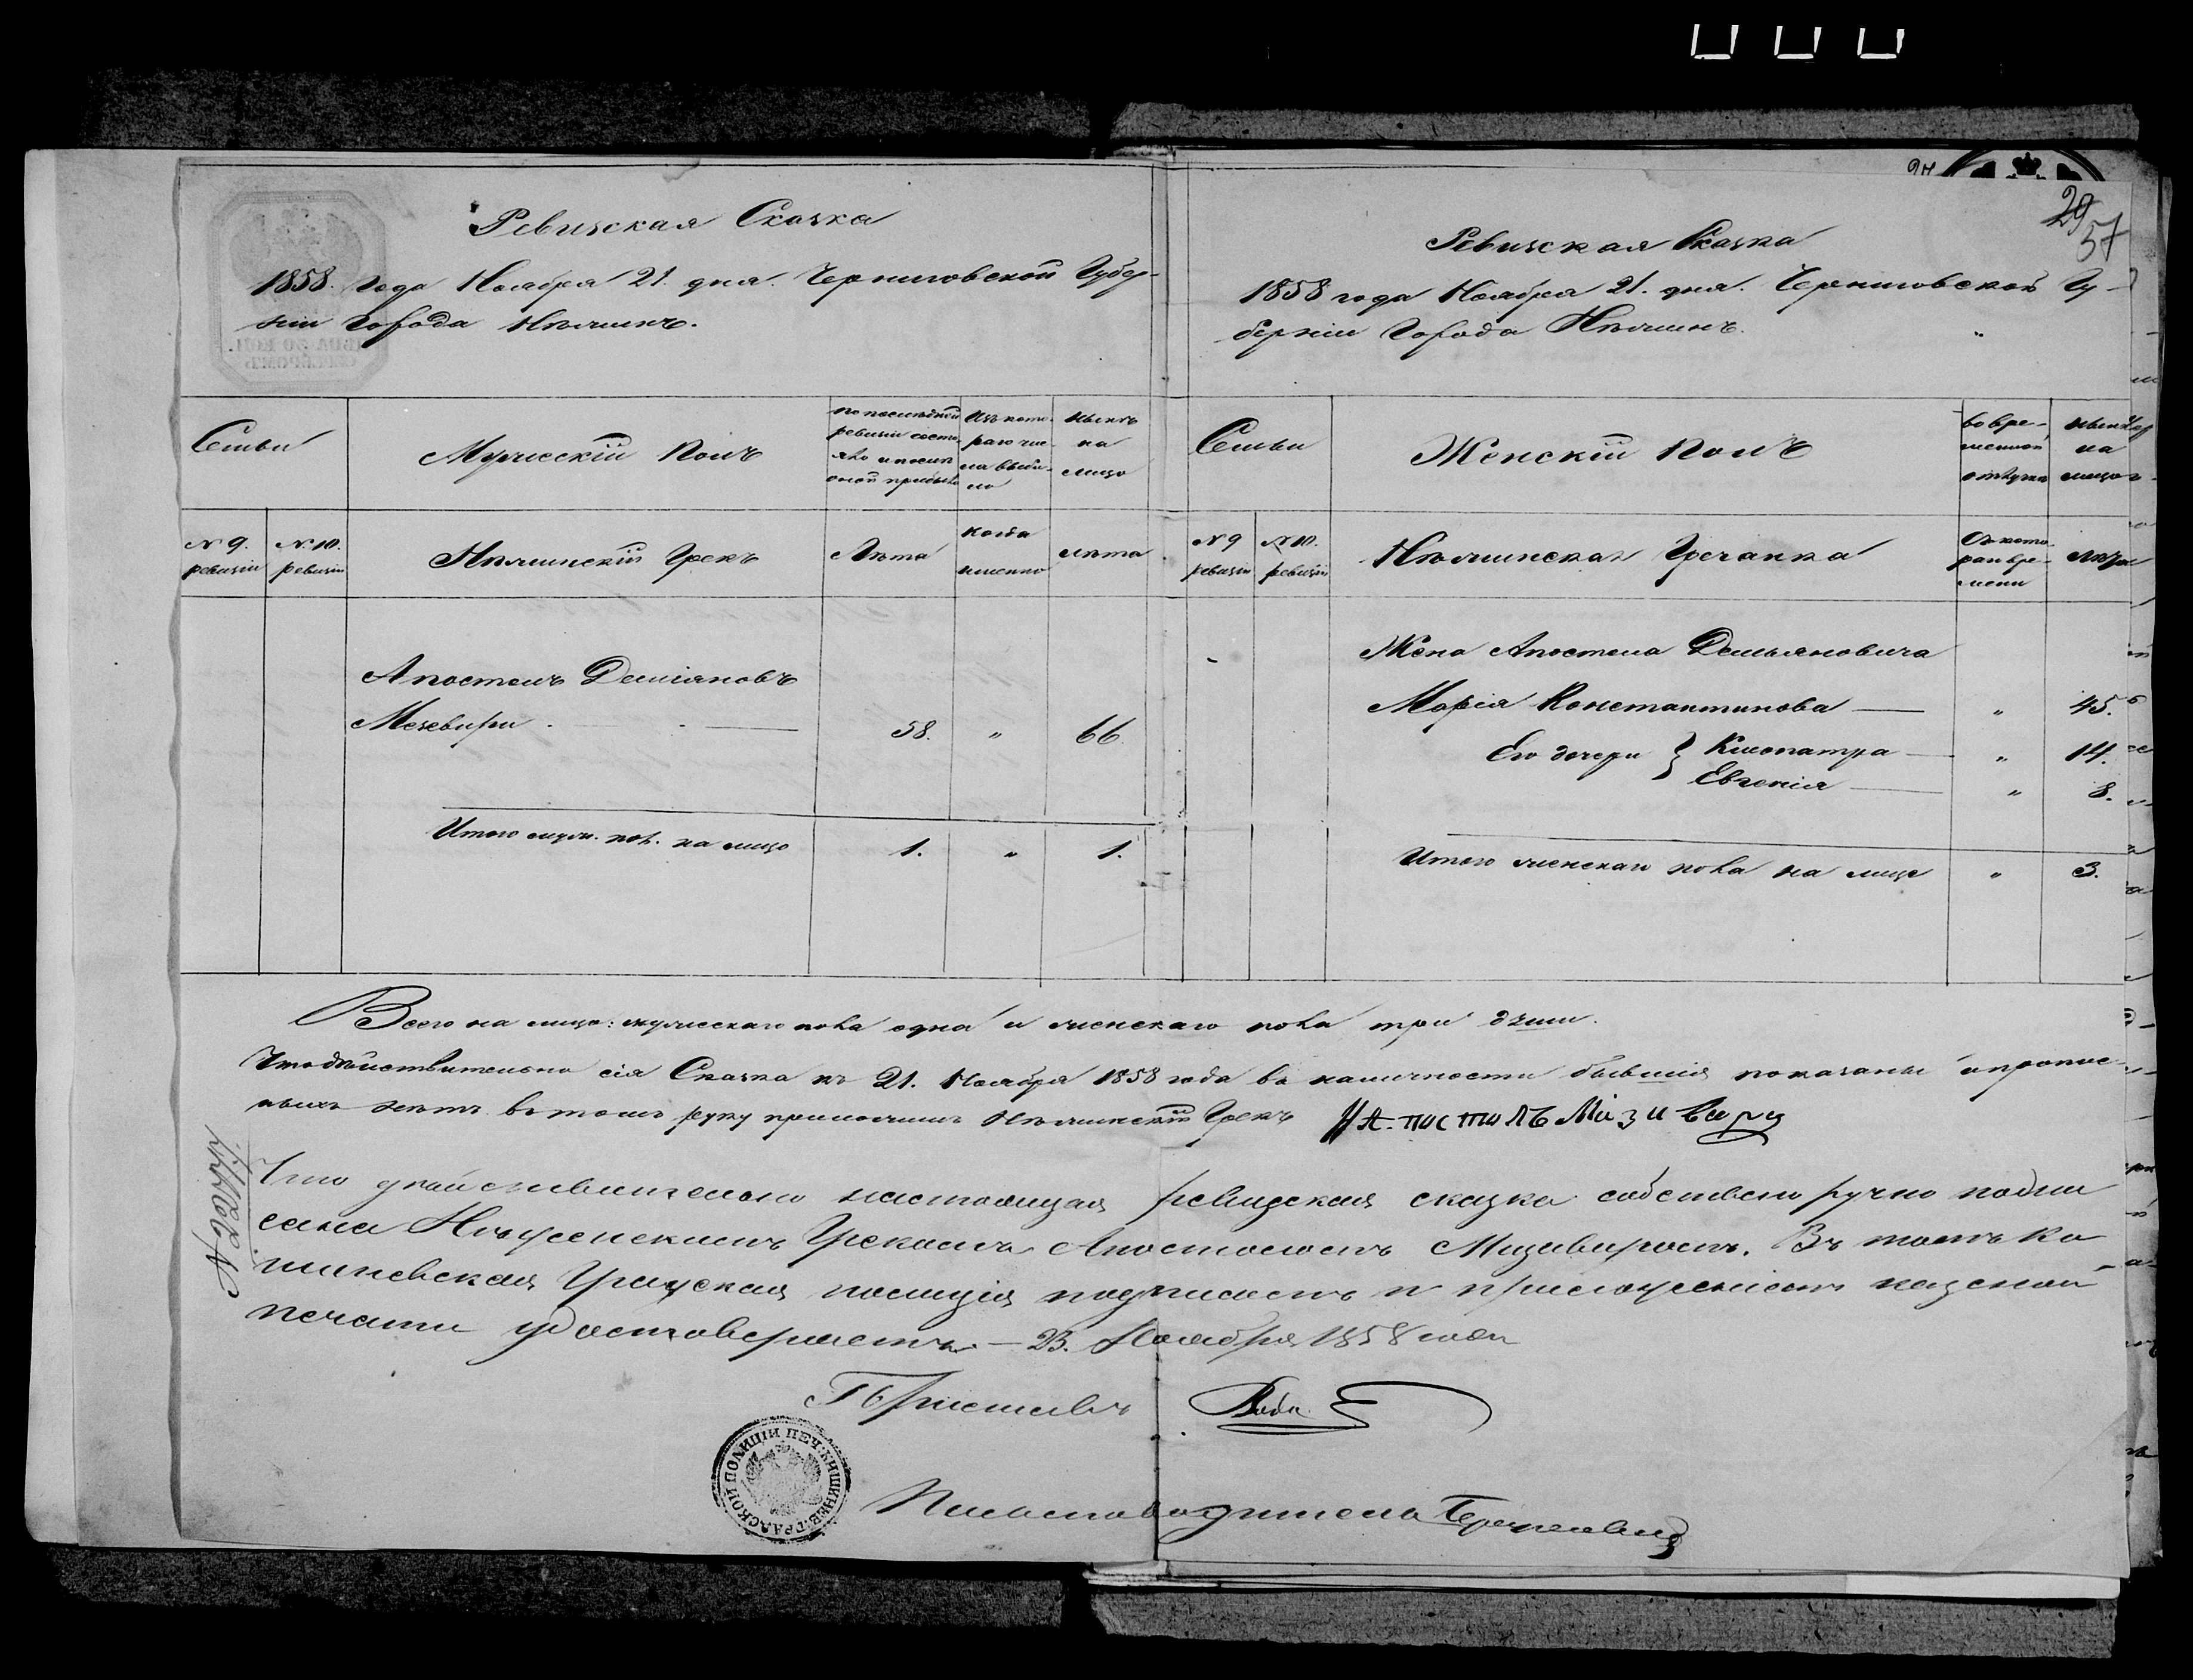 Ревизская Сказка
1858 года Ноября 21. дня. Черниговской Губер-
ніи Города Нѣжинъ.
Семьи
Мужескій Полъ
по последней ревизіи состояло и после оной прибыло
Изъ кото-раго чис-ла выбы-ло
нынѣ на лицо
№ 9. ревизіи
№ 10. ревизіи
Нѣжинскій Грекъ
Лѣта
когда именно
лѣта
Апостолъ Деміановъ
Мезевири 58. " 66
Итого муж. пол. на лицо 1. " 1.
29
57
Ревизская Сказка
1858 года Ноября 21. дня. Черниговской Гу-
берніи Города Нѣжинъ.
Семьи
Женскій Полъ
во вре-менной отлучке
нынѣ на лицо
№ 9 ревизіи
№ 10. ревизіи
Нѣжинская Гречанка
Съ кото-раго вре-мени
лѣта
Жена Апостола Демьяновича
Марія Константинова — " 45.
Его дочери } Клеопатра — " 14.
Евгенія — " 8.
Итого женскаго пола на лице " 3.
Всего на лицо: мужескаго пола одна и женскаго пола три души.
Что действительно сія Сказка къ 21. Ноября 1858 года въ наличности бывшія показаны и пропис-
ныхъ нѣтъ въ томъ руку приложилъ Нѣжинскій Грекъ Апостолъ Мизивири
№ 22777
Что действительно настоящая ревизская сказка собственноручно подпи
сана Нежинскимъ Грекомъ Апостоломъ Мизевиромъ. Въ томъ Ки
шиневская Градская полиція подписомъ и приложеніемъ казенной
печати удостоверяетъ. — 23. Ноября 1858 года
Приставъ
ПЕЧ. КИШИНЕВ. ГРАДСКОЙ ПОЛИЦІИ
Письмоводитель